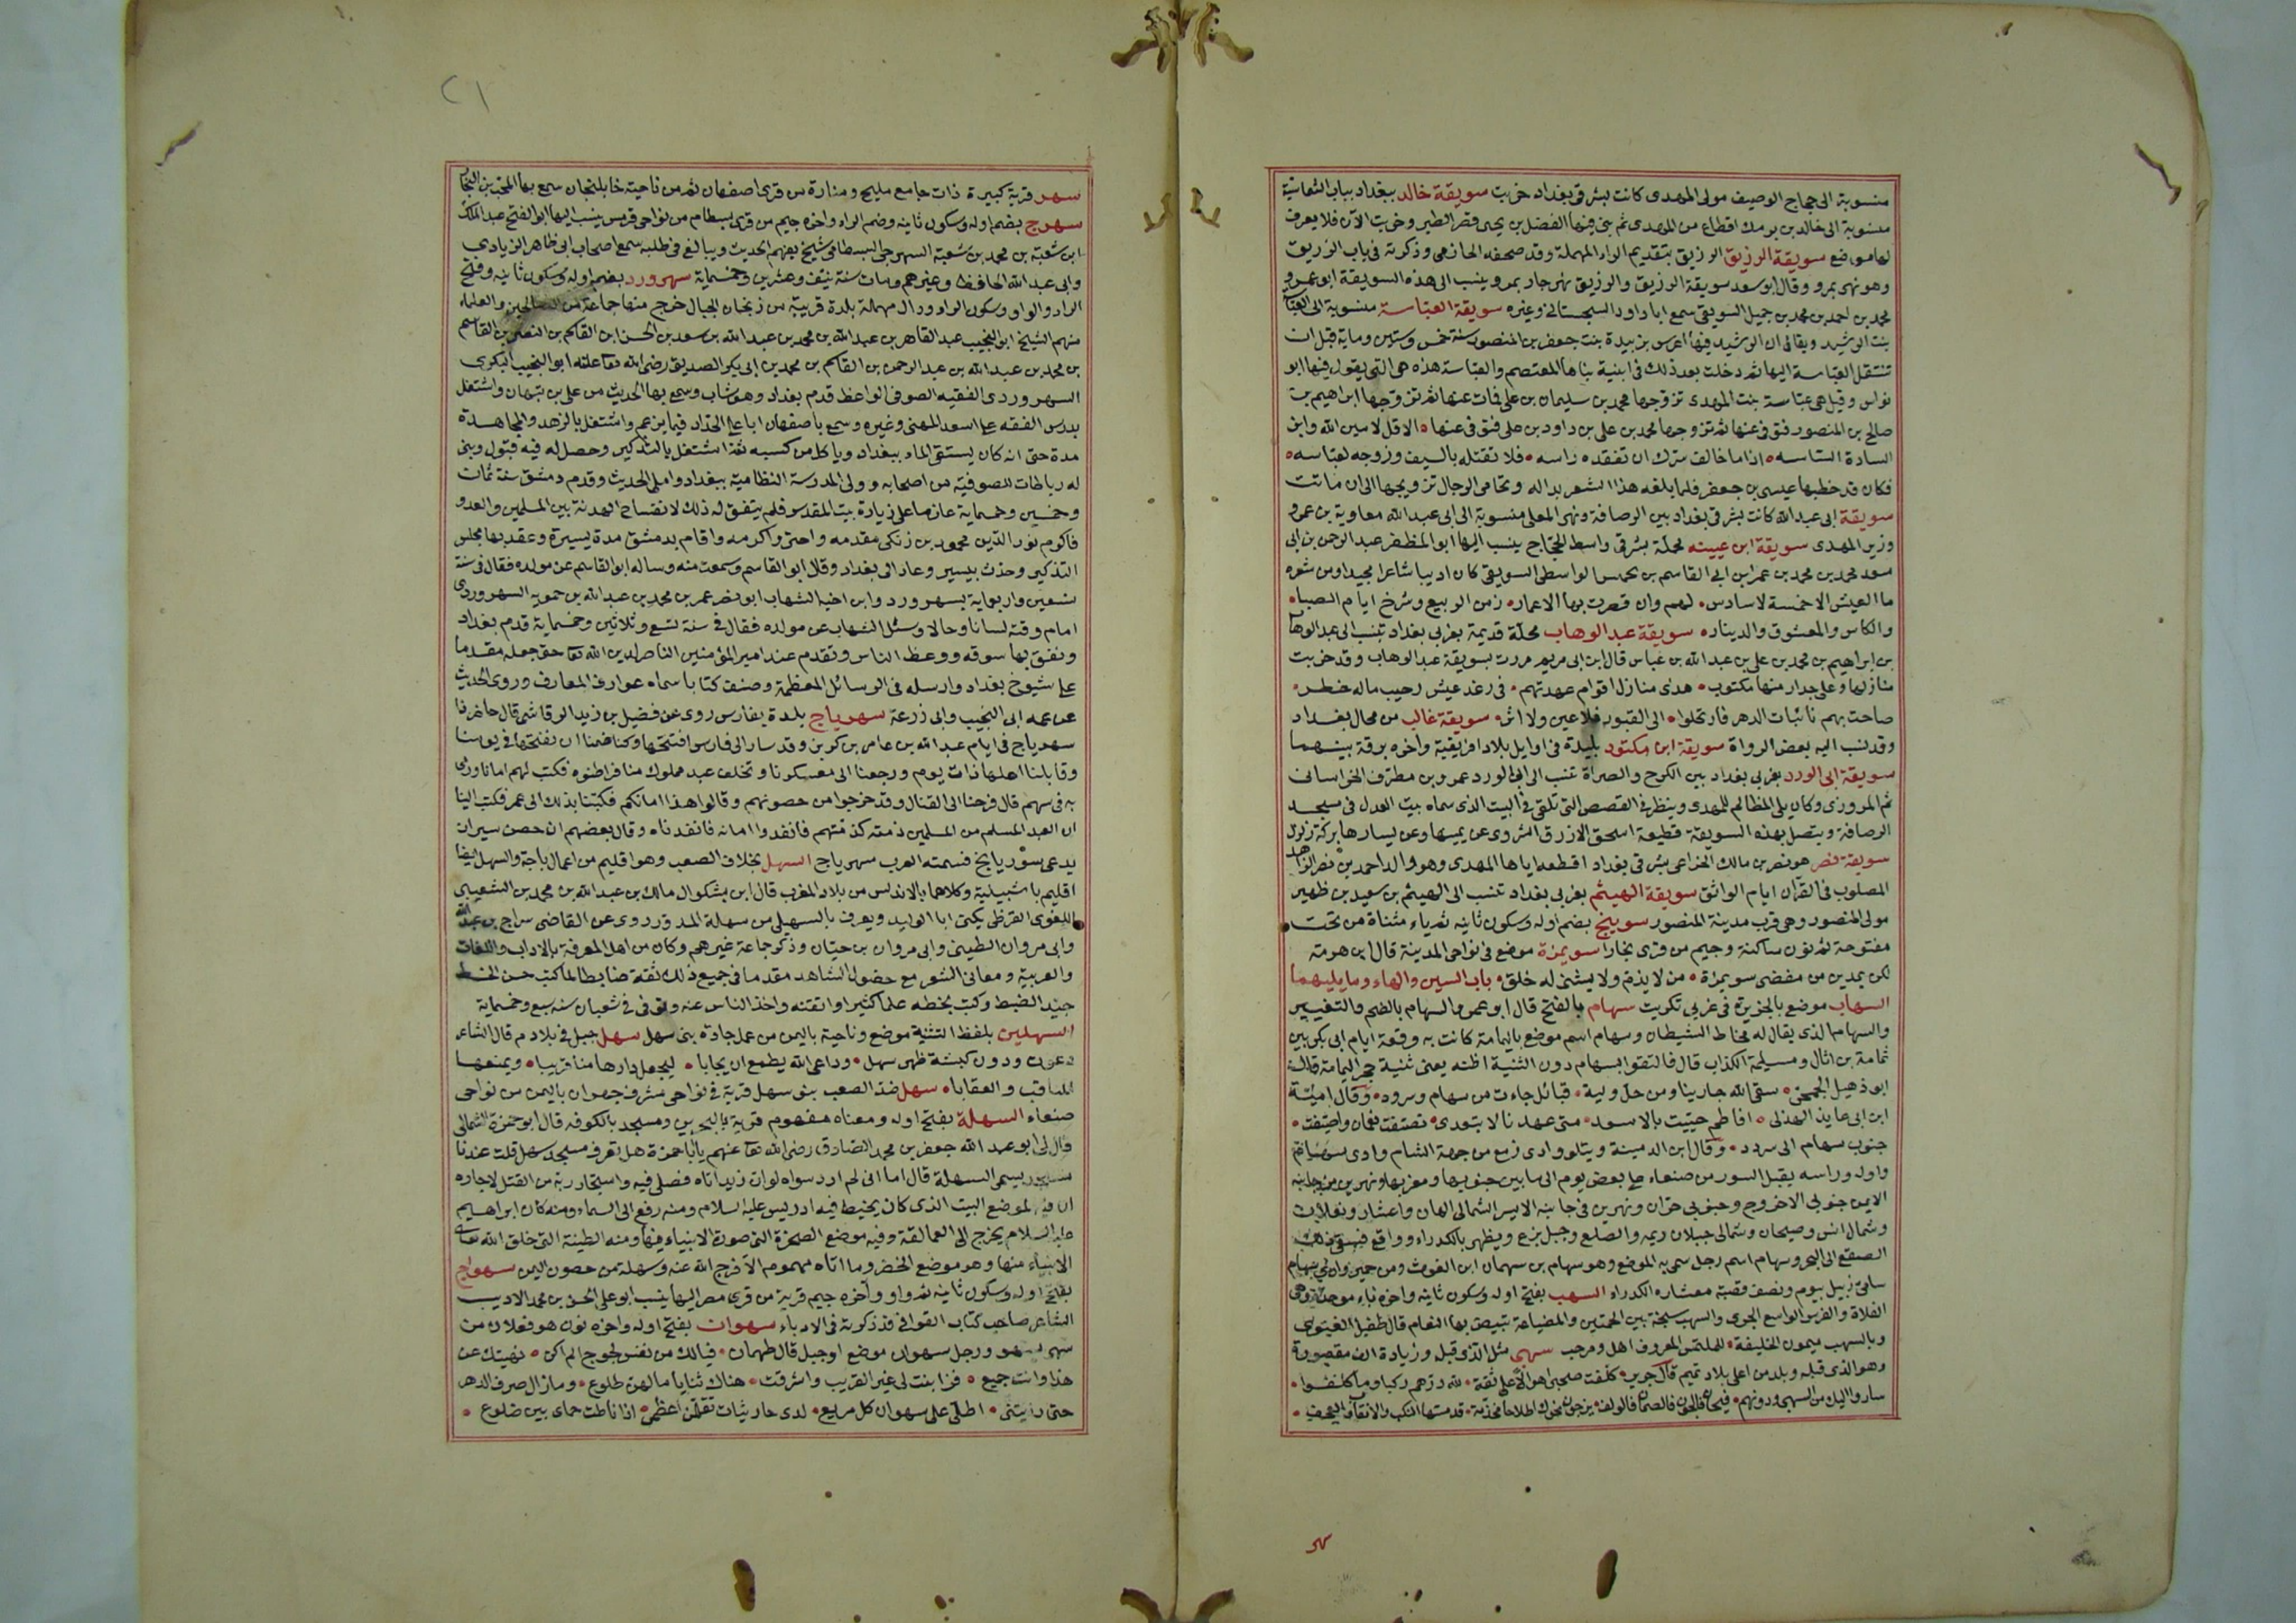 منسوبة الى حجاج الوصيف مولى المهدى كانت بشرقى بغداد خربت سويقة خالد ببغداد بباب الشماسية
منسوبة الى خالد بن برمك اقطاع من المهدى ثم بنى فيها الفضل بن يحيى قصر الطير وخربت الآن فلا يعرف
لها موضع سويقة الرزيق الرزيق بتقديم الراء المهملة وقد صحفه الحازمى وذكرته فى باب الرزيق
وهو نهر بمرو وقال ابو سعد سويقة الرزيق والرزيق نهر جار بمرو وينسب الى هذه السويقة ابو عمرو
محمد بن احمد بن محمد بن جميل السويقى سمع ابا داود السجستانى وغيره سويقة العباسة منسوبة الى العباسة
بنت الرشيد ويقال ان الرشيد فيها اعرس بزبيدة بنت جعفر بن المنصور سنة خمس وستين وماية قبل ان
تنتقل العباسة اليها ثم دخلت بعد ذلك فى ابنية بناها المعتصم والعباسة هذه هى التى يقول فيها ابو
نواس وقيل هى عباسة بنت المهدى تزوجها محمد بن سليمان بن على فمات عنها ثم تزوجها ابراهيم بن
صالح بن المنصور فتوفى عنها ثم تزوجها محمد بن على بن داود بن على فتوفى عنها الا قل لامين الله وابن
السادة الساسه اذا ما خالف سرك ان تفقده راسه فلا تقتله بالسيف وزوجه لعباسه
فكان قد خطبها عيسى بن جعفر فلما بلغه هذا الشعر بدا له وتحامى الرجال تزويجها الى ان ماتت
سويقة ابى عبد الله كانت بشرقى بغداد بين الرصافة ونهر المعلى منسوبة الى ابى عبد الله معاوية بن عمرو
وزير المهدى سويقة ابن عيينه لمحلة بشرقى واسط الحجاج ينسب اليها ابو المظفر عبد الرحمن بن ابى
سعد محمد بن محمد بن عمر ابن ابى القاسم بن الواسطى السويقى كان اديبا شاعرا مجيدا ومن شعره
ما العيش الا خمسة لا سادس لهم وان قصرت بها الاعمار زمن الربيع وشرخ ايام الصبا
والكاس والمعشوق والدينار سويقة عبد الوهاب محلة قديمة بغربى بغداد تنسب الى عبد الوهاب
بن ابراهيم بن محمد بن على بن عبد الله بن عباس قال ابن ابى مريم مررت بسويقة عبد الوهاب وقد خربت
منازلها وعلى جدار منها مكتوب هذى منازل اقوام عهدتهم فى رغد عيش رحيب ماله خطر
صاحت بهم نائبات الدهر فارتحلوا الى القبور فلا عين ولا اثر سويقة غالب من محال بغداد
وقد نسب اليه بعض الرواة سويقة ابن مكتود بليدة فى اوايل بلاد افريقية واخره برقة بينهما
سويقة ابى الورد بغربى بغداد بين الكرخ والصراة تنسب الى ابى الورد عمرو بن مطرف الخراسانى
ثم المروزى وكان يلى المظالم للمهدى وينظر فى القصص التى تلقى فى البيت الذى سماه بيت العدل فى مسجد
الرصافة ويتصل بهذه السويقة قطيعة اسحق الازرق الشروى عن يمينها وعن يسارها بركة زلزل
سويقة نصر هو نصر بن مالك الخزاعى بشرقى بغداد اقطعه اياها المهدى وهو والد احمد بن نصر الزاهد
المصلوب فى القرآن ايام الواثق سويقة الهيثم بغربى بغداد تنسب الى الهيثم بن سعيد بن ظهير
مولى المنصور وهى قرب مدينة المنصور سوينج بضم اوله وسكون ثانيه ثم ياء مثناة من تحت
مفتوحة ثم نون ساكنة وجيم من قرى بخارا سويمرة موضع فى نواحى المدينة قال ابن هرمة
لكن بمدين من مفضى سويمرة من لا يذم ولا يشنى له خلق باب السين والهاء وما يليهما
السهاب موضع بالجزيرة فى غربى تكريت سهام بالفتح قال ابو عمرو السهام بالضم والتغيير
والسهام الذى يقال له مخاط الشيطان وسهام اسم موضع باليمامة كانت به وقعة ايام ابى بكر بين
ثمامة بن اثال ومسيلمة الكذاب قال فالتقوا بسهام دون الثنية اظنه يعنى ثنية حجر اليمامة قال
ابو دهبل الجمحى سقى الله جارينا ومن حل وليه قبائل جاءت من سهام وسردد وقال امية
ابن ابى عايذ الهذلى افاطم حييت بالاسعد متى عهدنا لا تبعدى تصيفت نعمان واصيفت
جنوب سهام الى سردد وقال ابن الدمينة ويتلو وادى رمع من جهة الشام وادى سهام
واوله وراسه نقيل السود من صنعاء على بعض يوم الى ما بين جنوبيها ومغربها ونهرين من جانبه
الايمن جنوبى الاخروج وجنوبى حران ونهرين فى جانبه الايسر الشمالى الهان واعشار وبقلان
وشمال انس وصيحان وشمالى جبلان ريمه والصلع وجبل برع ويظهر بالكدراء وواقع فيسقى ذلك
الصقع الى البحر وسهام اسم رجل سمى به الموضع وهو سهام بن سهمان ابن الغوث ومن حمير وادى سهام
سامى زبيد بيوم ونصف قصبة معشاره الكدراء السهب بفتح اوله وسكون ثانيه واخره باء موحدة وهى
الفلاة والفرس الواسع الجرى والسهب سبخة بين الحمتين والمضياعة تبيض بها النعام قال طفيل الغنوى
وبالسهب ميمون الخليفة للملتمس المعروف اهل ومرحب سهبى مثل الذى قبله وزيادة الف مقصورة
وهو الذى قبله وبلد من اعلى بلاد تميم قال جرير كلفت صحبى اهوالا على ثقة لله درهم ركبا وما كلفوا
ساروا اليك من السهبى ودونهم فيحان فالحزن فالصمان فالوكف يزجون نحوك اطلاحا مخذمة قد مستها النكب والانقاب والعجف
سهر
٢١
سهر قرية كبيرة ذات جامع مليح ومنارة من قرى اصفهان ثم من ناحية خابلنجان سمع بها المحب بن النجار
سهرج بضم اوله وسكون ثانيه وضم الراء واخره جيم من قرى بسطام من نواحى قومس ينسب اليها ابو الفتح عبد الملك
ابن شعبة بن محمد بن شعبة السهرجى البسطامى شيخ يفهم الحديث ويبالغ فى طلبه سمع اصحاب ابى طاهر الزيادى
وابى عبد الله الحافظ وغيرهم ومات سنة نيف وعشرين وخمسماية سهرورد بضم اوله وسكون ثانيه وفتح
الراء والواو وسكون الراء ودال مهملة بلدة قريبة من زنجان بالجبال خرج منها جماعة من الصالحين والعلماء
منهم الشيخ ابو النجيب عبد القاهر بن عبد الله بن محمد بن عبد الله بن سعد بن الحسن ابن القاسم بن النضر بن القاسم
بن محمد بن عبد الله بن عبد الرحمن بن القاسم بن محمد بن ابى بكر الصديق رضى الله تعا عنه ابو النجيب البكرى
السهروردى الفقيه الصوفى الواعظ قدم بغداد وهو شاب وسمع بها الحديث من على بن نبهان واشتغل
بدرس الفقه على اسعد المهنى وغيره وسمع باصفهان ابا على الحداد فيما يزعم واشتغل بالزهد والمجاهدة
مدة حتى انه كان يستقى الماء ببغداد وياكل من كسبه ثم اشتغل بالتذكير وحصل له فيه قبول وبنى
له رباطات للصوفية من اصحابه وولى المدرسة النظامية ببغداد واملى الحديث وقدم دمشق سنة ثمان
وخمسين وخمسماية عازما على زيارة بيت المقدس فلم يتفق له ذلك لانفساخ الهدنة بين المسلمين والعدو
فاكرم نور الدين محمود بن زنكى مقدمه واحترمه واكرمه واقام بدمشق مدة يسيرة وعقد بها مجلس
التذكير وحدث بيسير وعاد الى بغداد وقال ابو القاسم وسمعت منه وساله ابو القاسم عن مولده فقال فى سنة
تسعين واربعماية بسهرورد وابن اخيه الشهاب ابو نصر عمر بن محمد بن عبد الله بن حمويه السهروردى
امام وقته لسانا وحالا وسئل الشهاب عن مولده فقال فى سنة تسع وثلاثين وخمسماية قدم بغداد
ونفق بها سوقه ووعظ الناس وتقدم عند امير المؤمنين الناصر لدين الله تعا حتى جعله مقدما
على شيوخ بغداد وارسله فى الرسائل المعظمة وصنف كتابا سماه عوارف المعارف وروى الحديث
عن عمه ابى النجيب وابى زرعة سهرياج بلدة بفارس روى عن فضيل بن زيد الرقاشى قال حاصرنا
سهرياج فى ايام عبد الله بن عامر بن كريز وقد سار الى فارس افتتحها وكنا ضمنا ان نفتحها فى يومنا
وقابلنا اهلها ذات يوم ورجعنا الى معسكرنا وتخلف عبد مملوك منا فراطنوه فكتب لهم امانا ورمى
به فى سهم قال فرحنا الى القتال وقد خرجوا من حصونهم وقالوا هذا امانكم فكتبنا بذلك الى عمر فكتب الينا
ان العبد المسلم من المسلمين ذمته كذمتهم فانفذوا امانه فانفذناه وقال بعضهم ان حصن سيران
يدعى سوريانج فسمته العرب سهرياج السهل بخلاف الصعب وهو اقليم من اعمال باجة والسهل ايضا
اقليم باشبيلية وكلاهما بالاندلس من بلاد المغرب قال ابن بشكوال مالك بن عبد الله بن محمد بن الشعيبى
اللغوى القرظى يكنى ابا الوليد ويعرف بالسهيلى من سهلة المدور روى عن القاضى سراج بن عبد الله
وابى مروان الطبنى وابى مروان بن حيان وذكر جماعة غيرهم وكان من اهل المعرفة بالاداب واللغات
والعربية ومعانى الشعر مع حضور الشاهد مقدما فى جميع ذلك ثقة ضابطا لما كتب حسن الخط
جيد الضبط وكتب بخطه علما كثيرا واتقنه واخذ الناس عنه وتوفى فى شعبان سنه سبع وخمسماية
السهلين بلفظ التثنية موضع وناحية باليمن من عمل جادة بنى سهل سهل جبل فى بلادم قال الشاعر
دعوت ودون كبشة ظهر سهل وداعى الله يطمع ان يجابا ليجعل دارها منا قريبا ويمنعها
المناقب والعقابا سهل ضد الصعب بنو سهل قرية فى نواحى مشرف جهران باليمن من نواحى
صنعاء السهلة بفتح اوله ومعناه مفهوم قرية بالبحرين ومسجد بالكوفه قال ابو حمزة الثمالى
قال لى ابو عبد الله جعفر بن محمد الصادق رضى الله تعا عنهم يا ابا حمزة هل تعرف مسجد سهل قلت عندنا
مسجد يسمى السهلة قال اما انى لم ارد سواه لو ان زيدا اتاه فصلى فيه واستجار ربه من القتل لاجاره
ان فيه لموضع البيت الذى كان يخيط فيه ادريس عليه السلام ومنه رفع الى السماء ومنه كان ابراهيم
عليه السلام يخرج الى العمالقة وفيه موضع الصخرة التى صورة الانبياء فيها ومنه الطينة التى خلق الله تعالى
الانبياء منها وهو موضع الخضر وما اتاه مهموم الا فرج الله عنه وسهلة من حصون اليمن سهواج
بفتح اوله وسكون ثانيه ثم واو وآخره جيم قرية من قرى مصر اليها ينسب ابو على الحسن بن محمد الاديب
الشاعر صاحب كتاب القوافى قد ذكرته فى الادباء سهوان بفتح اوله واخره نون هو فعلان من
سهى يسهو ورجل سهوان موضع او جبل قال طهمان فيالك من نفس لجوج الم اكن نهيتك عن
هذا وانت جميع فزابنت لى غير القريب واشرفت هناك ثنايا ما لهن طلوع وما زال صرف الدهر
حتى رايتنى اطلى على سهوان كل مريع لدى حارثيات تقلقن اعظمى اذا ناطت حماى بين ضلوع